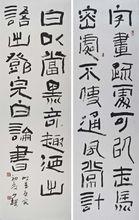 字畫疏處可以走馬
密處不使通風常計
白以當黑奇趣迺出
語出鄧完白論書